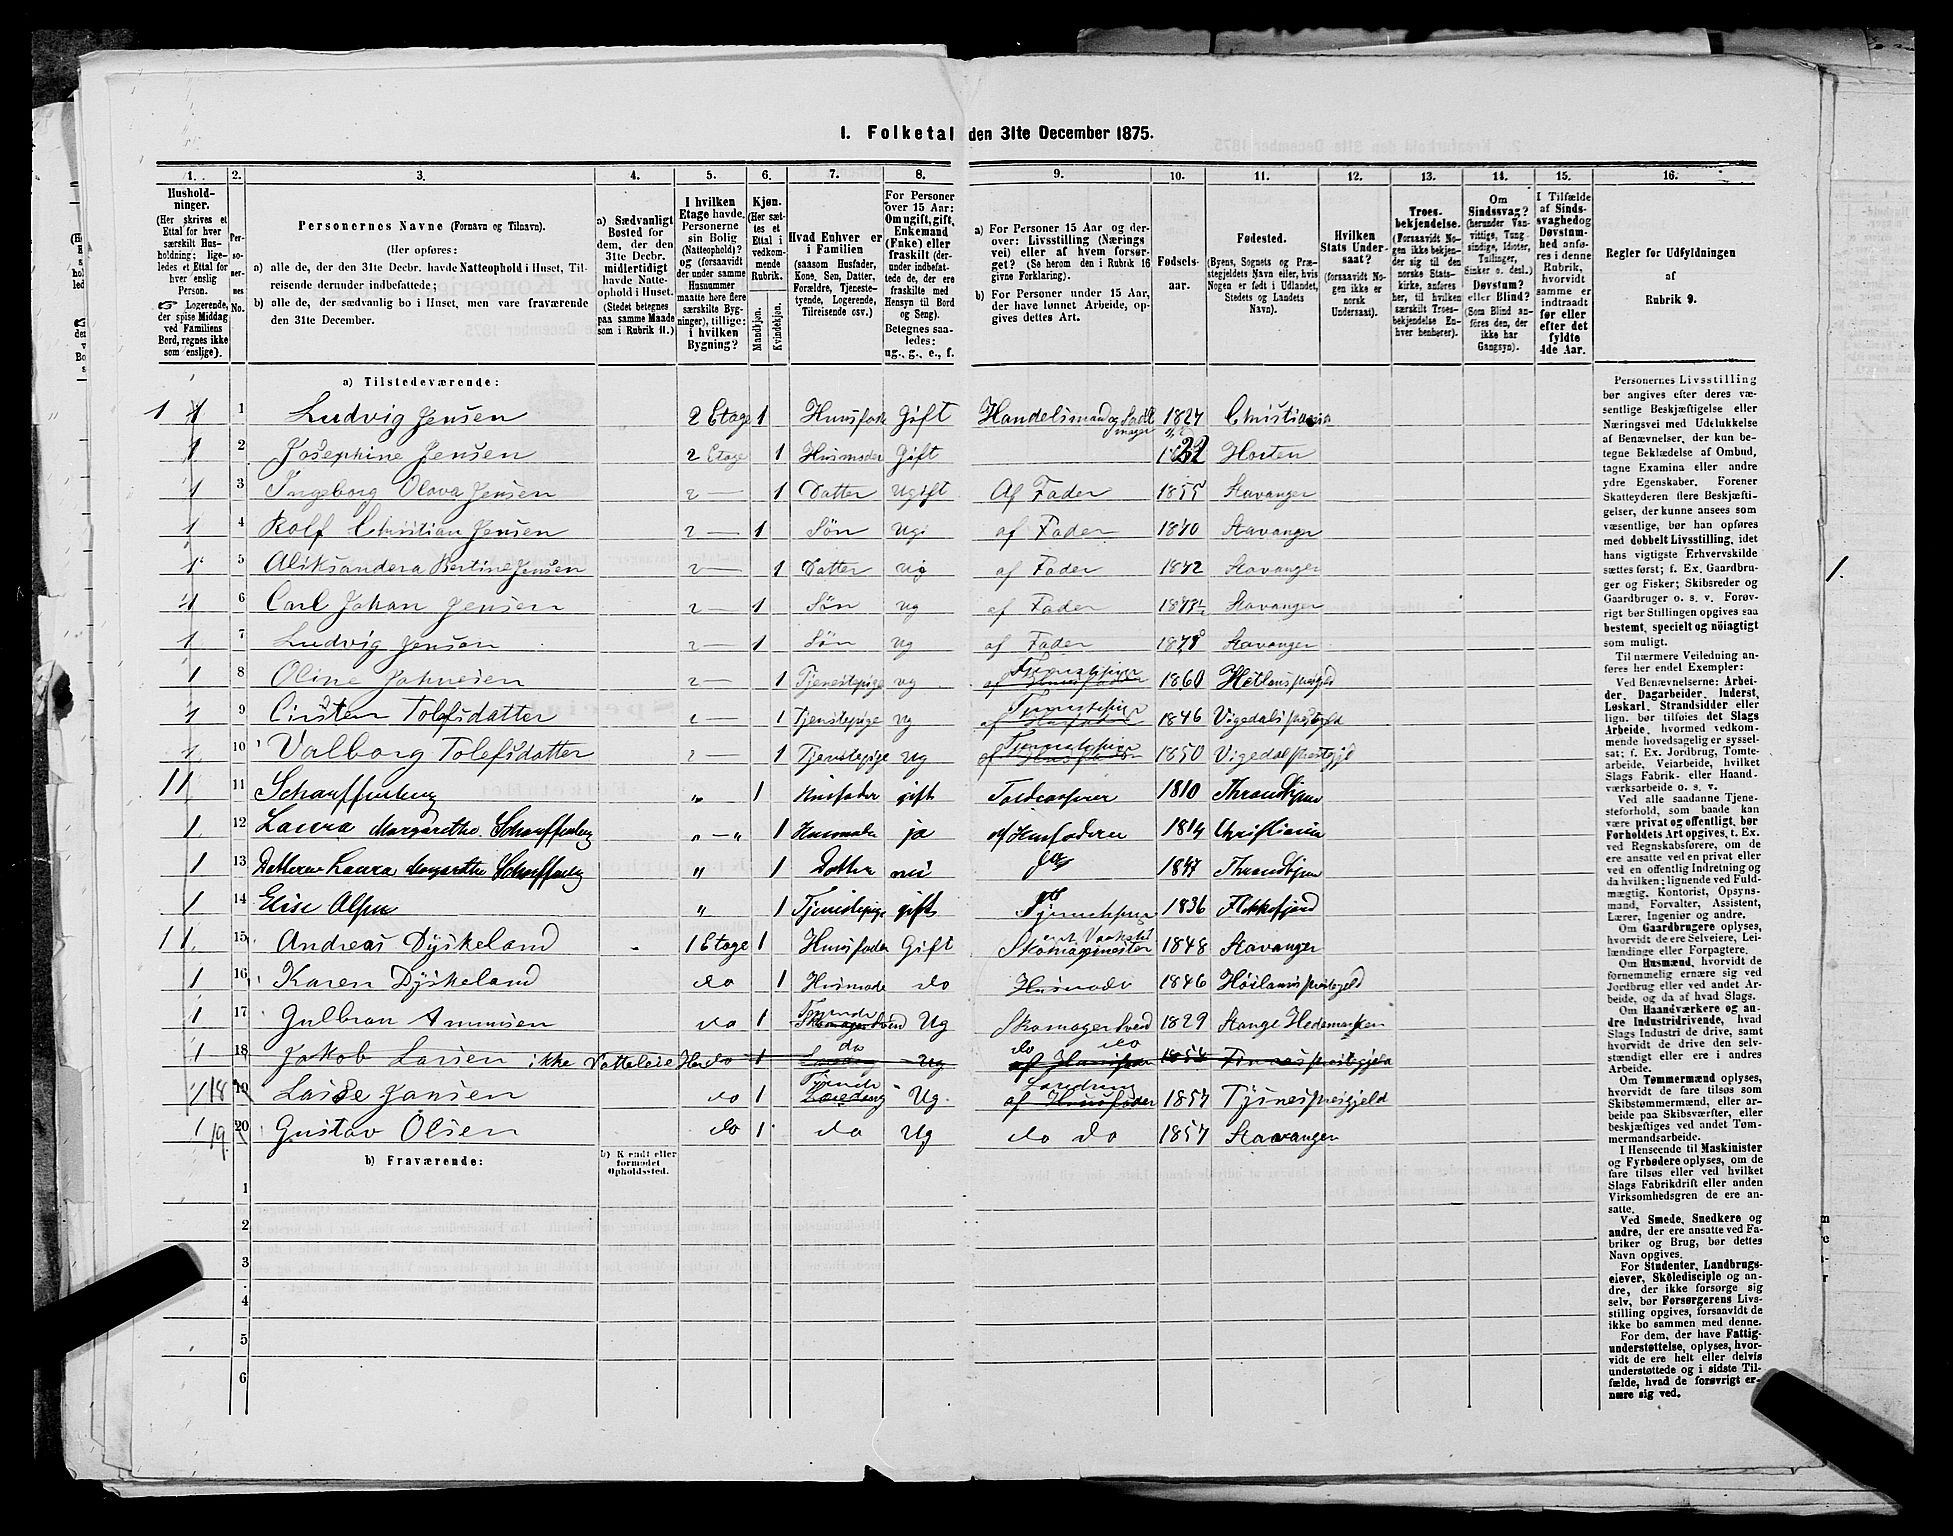 1. Folketal den 31te December 1875.
1. 2. 3. 4. 5. 6. 7. 8. 9. 10. 11. 12. 13. 14. 15. 16.
Husholdninger.
(Her skrives et
Ettal for hver
særskilt Husholdning;
ligeledes
et Ettal for
hver enslig
Person.
☞ Logerende,
der spise Middag
ved Familiens
Bord, regnes ikke
som enslige).
Personernes No.
Personernes Navne (Fornavn og Tilnavn).
(Her opføres:
a) alle de, der den 31te Decbr. havde Natteophold i Huset, Tilreisende
derunder indbefattede;
b) alle de, der sædvanlig bo i Huset, men vare fraværende
den 31te December.
a) Sædvanligt
Bosted for
dem, der den
31te Decbr.
midlertidigt
havde Natteophold
i Huset.
(Stedet betegnes
paa samme Maade
som i Rubrik 11.)
I hvilken
Etage havde
Personerne
sin Bolig
(Natteophold)?
og (forsaavidt
der under samme
Husnummer
maatte høre flere
særskilte Bygninger),
tillige:
i hvilken
Bygning?
Kjøn.
(Her sættes
et
Ettal i
vedkommende
Rubrik.
Mandkjøn.
Kvindekjøn.
Hvad Enhver er
i Familien
(saasom Husfader,
Kone, Søn, Datter,
Forældre, Tjenestetyende,
Logerende,
Tilreisende osv.)
For Personer
over 15 Aar:
Om ugift, gift,
Enkemand
(Enke) eller
fraskilt (derunder
indbefattede
de, der ere
fraskilte med
Hensyn til Bord
og Seng).
Betegnes saaledes:
ug., g., e., f.
a) For Personer 15 Aar og derover:
Livsstilling (Næringsvei)
eller af hvem forsørget?
(Se herom den i Rubrik 16
givne Forklaring).
b) For Personer under 15 Aar,
der have lønnet Arbeide, opgives
dettes Art.
Fødselsaar.
Fødested.
(Byens, Sognets og Præstegjeldets
Navn eller, hvis
Nogen er født i Udlandet,
Stedets og Landets
Navn).
Hvilken
Stats Undersaat?
(forsaavidt Nogen
ikke er
norsk
Undersaat).
Troesbekjendelse.
(Forsaavidt Nogen
ikke bekjender
sig til den
norske Statskirke,
anføres
her, til hvilken
særskilt Troesbekjendelse
Enhver
henhører).
Om
Sindssvag?
(herunder Vanvittige,
Tungsindige,
Idioter,
Tullinger,
Sinker o. desl.)
Døvstum?
eller Blind?
(Som Blind anføres
den, der
ikke har
Gangsyn).
I Tilfælde
af Sindssvaghed
og
Døvstumhed
anføres
i denne
Rubrik,
hvorvidt
samme er
indtraadt
før eller
efter det
fyldte
4de Aar.
Regler for Udfyldningen
af
Rubrik 9.
a) Tilstedeværende:
1 1 1 Ludvig Jensen 2 Etage 1 Huusfader Gift Handelsmand og 1827 Christiania
1 2 Josephine Jensen 2 Etage 1 Husmoder Gift Horten
1 3 Ingeborg Olava Jensen 2 — 1 Datter Ugift Af Fader 1855 Stavanger
1 4 Rolf Christian Jensen 2 — 1 Søn Ugi af Fader 1870 Stavanger
1 5 Aliksandera Bertine Jensen 2 — 1 Datter ug af Fader 1872 Stavanger
1 6 Carl Johan Jensen 2 — 1 Søn ug af Fader Stavanger
1 7 Ludvig Jensen 2 — 1 Søn ug af Fader Stavanger
1 8 Oline Johnesen 2 — 1 Tjenestepige ug Tjenestepige 1860
1 9 Cirsten Tolefsdatter 2 — 1 Tjenstepige ug Tjenestepige 1846
1 10 Valborg Tolefsdatter 2 — 1 Tjenstepige ug Tjenestepige 1850
1 1 11 Scharffenberg " 1 Husfader gift 1810 Throndhjem
1 12 Laura Margarethe Scharffenberg " — " 1 Husmoder ja af Husfaderen 1814 Christiania
1 13 Datteren Laura Margarethe Scharffenberg " 1 Datter nei 1847 Throndhjem
1 14 Elise Olsen " 1 Tjenestepige gift 1836 Flekkefjord
1 1 15 Andreas Dyskeland 1 Etage 1 Huusfader Gift Skomagermester 1848 Stavanger
1 16 Karen Dyskeland do 1 Husmode do Husmoder 1846
1 17 Gulbran Amunsen do 1 Tjenende Ug Skomagersvend 1829 Stange Hedemarken
1 18 Jakob Larsen ikke do 1 do Ug do do 1854
1 18 19 Lasse Jansen do 1 Tjende Ug. 1857 Tysnes
1 19 20 Gustav Olsen do 1 do Ug do do 1857 Stavanger
b) Fraværende:
b) Kendt eller
formodet
Opholdssted.
1
2
3
4
5
6
Personernes Livsstilling
bør angives efter deres væsentlige
Beskjæftigelse eller
Næringsvei med Udelukkelse
af Benævnelser, der kun betegne
Beklædelse af Ombud,
tagne Examina eller andre
ydre Egenskaber. Forener
Skatteyderen flere Beskjæftigelser,
der kunne ansees som
væsentlige, bør han opføres
med dobbelt Livsstilling, idet
hans vigtigste Erhvervskilde
sættes først; f. Ex. Gaardbruger
og Fisker; Skibsreder og
Gaardbruger o. s. v. Forøvrigt
bør Stillingen opgives saa
bestemt, specielt og nöiagtigt
som muligt.
Til nærmere Veiledning anføres
her endel Exempler:
Ved Benævnelserne: Arbeider,
Dagarbeider, Inderst,
Løskarl, Strandsidder eller
lign. bør tilføies det Slags
Arbeide, hvormed vedkommende
hovedsagelig er sysselsat;
f. Ex. Jordbrug, Tomtearbeide,
Veiarbeide, hvilket
Slags Fabrik- eller Haandværksarbeide
o. s. v.
Ved alle saadanne Tjenesteforhold,
som baade kan
være privat og offentligt, bør
Forholdets Art opgives, t. Ex.
ved Regnskabsførere, om de
ere ansatte ved en privat eller
ved en offentlig Indretning og
da hvilken; lignende ved Fuldmægtig,
Kontorist, Opsynsmand,
Forvalter, Assistent,
Lærer, Ingeniør og andre.
Om Gaardbrugere oplyses,
hvorvidt de ere Selveiere, Leilændinge
eller Forpagtere.
Om Husmænd, hvorvidt de
fornemmelig ernære sig ved
Jordbrug eller ved andet Arbeide,
og da af hvad Slags.
Om Haandværkere og andre
Industridrivende, hvad
Slags Industri de drive, samt
hvorvidt de drive den selvstændigt
eller ere i andres
Arbeide.
Om Tømmermænd oplyses,
hvorvidt de fare tilsøs som
Skibstømmermænd, eller arbeide
paa Skibsværfter, eller
beskjæftiges ved andet Tømmermandsarbeide.
I Henseende til Maskinister
og Fyrbødere oplyses, om de
fare tilsøs eller ved hvilket
Slags Fabrikdrift eller anden
Virksomhedsgren de ere ansatte.
Ved Smede, Snedkere og
andre, der ere ansatte ved Fabriker
og Brug, bør dettes
Navn opgives.
For Studenter, Landbrugselever,
Skoledisciple og andre,
der ikke forsørge sig
selv, bør Forsørgerens Livsstilling
opgives, forsaavidt de
ikke bo sammen med denne.
For dem, der have Fattigunderstøttelse,
oplyses, hvorvidt
de ere helt eller delvis
understøttede og i sidste Tilfælde,
hvad de forøvrigt ernære
sig ved.